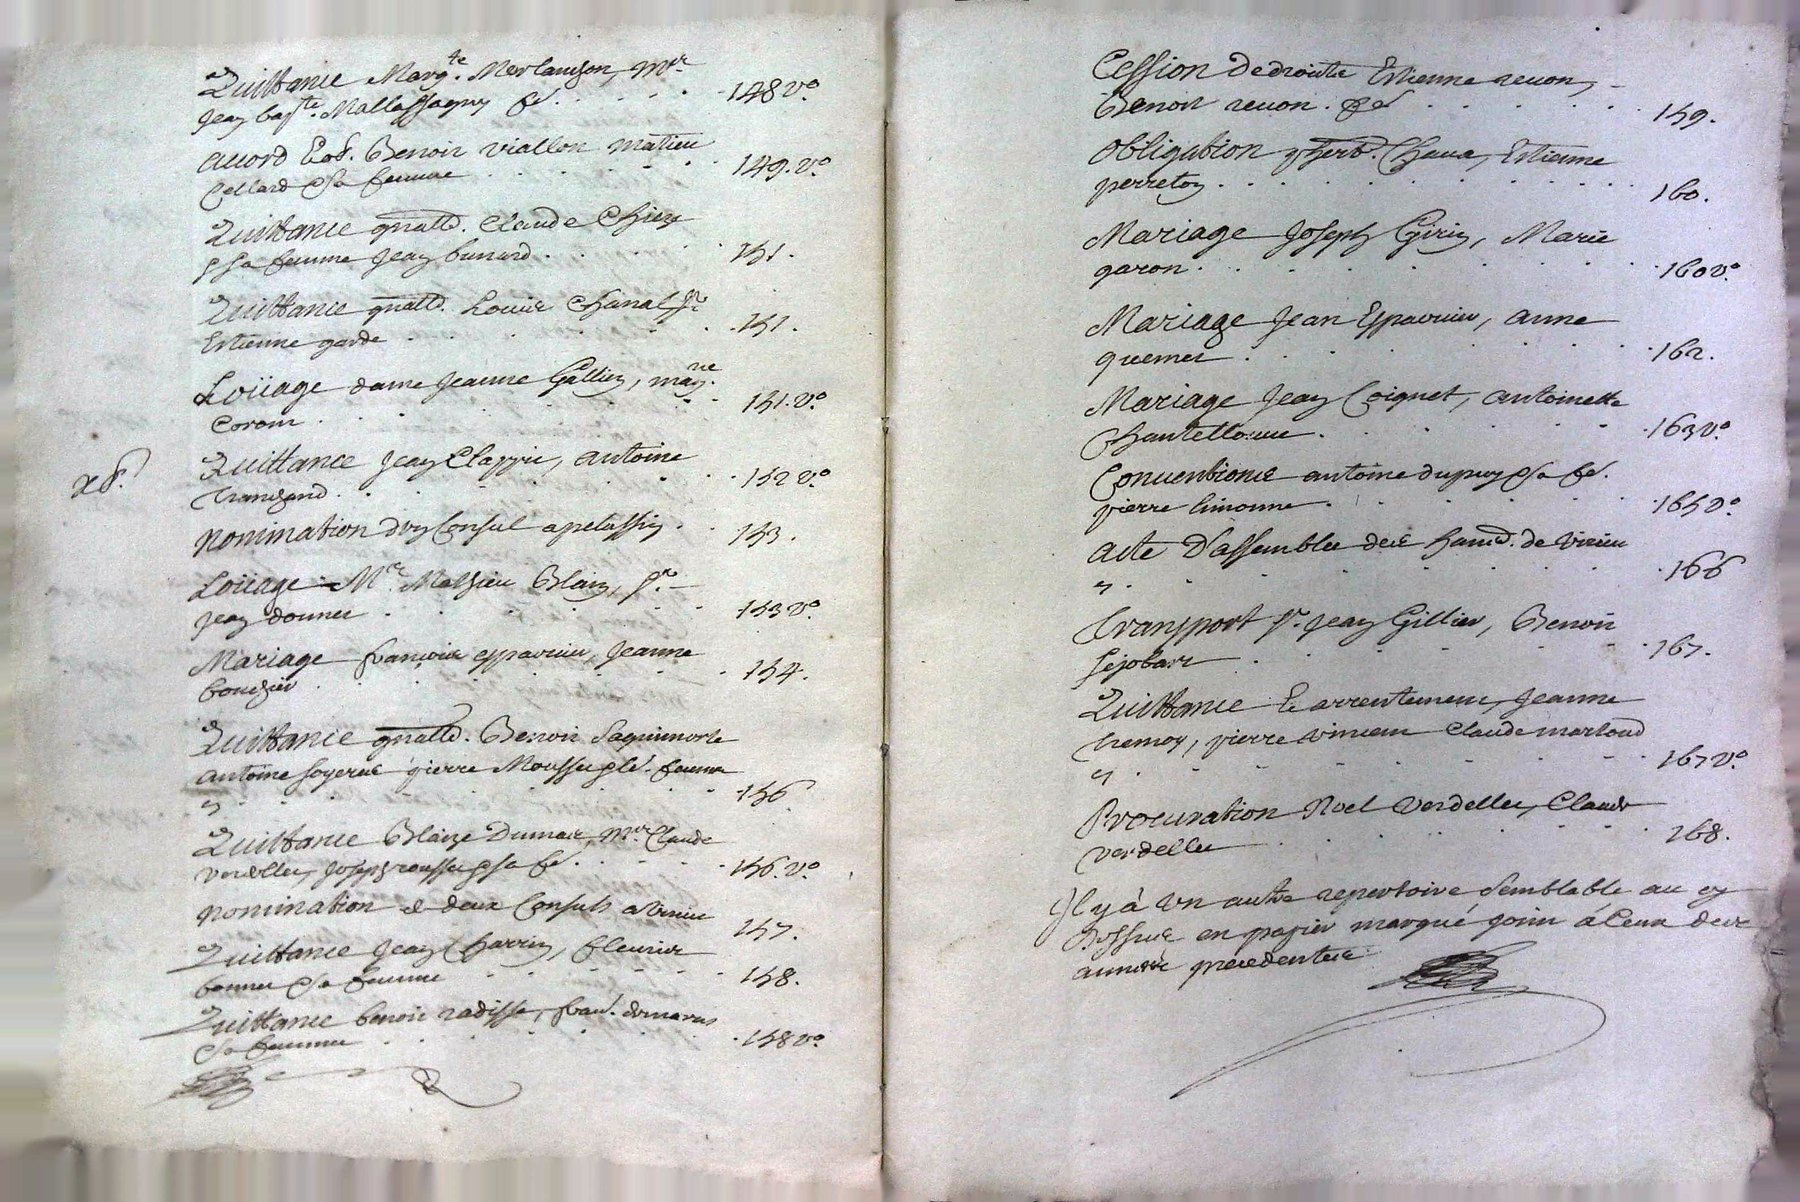 Quittance Marg.te Merlanchon, Mre
Jean bapte. Mallassagny fe. 148 vo
accord Ent. Benoit viallon matieu
Cellard & sa femme 149. vo
Quittance gnalle. Claude
& sa femme Jean bunard. 151.
Quittance gnalle. Louis Chanal Sr
Estienne garde 151.
Loüage dame Jeanne Gallien, mag.ne
Coront 151. vo
Quittance Jean Clappe, antoine
Tranchand. 152 vo
nomination d'un Consul apelassin. 153.
Loüage Mre. Mathieu Blain, Sr.
Jean donnet 153 vo
Mariage françois espareu, Jeanne
bouchir 154.
Quittance gnalle. Benoit Saquimorte
antoine soyeres pierre Mousse & le. femme
" 156
Quittance Blaize Dumas, Mre Claude
verdellet, Joseph rousset & sa fe. 156. vo
nomination de deux Consuls a virieu 157.
Quittance Jean Charrin, fleurie
bonnet & sa femme 158.
Quittance benoit radisse, fran. dumarest
& sa femme 158 vo
Cession de droits Estienne reuon,
Benoit reuon. fe 159.
Obligation Chaux, Estienne
perreton 160.
Mariage Joseph Girin, Marie
garon. 160 vo
Mariage Jean Espareu, anne
quemet 162.
Mariage Jean Coignet, antoinette
Chantelouue 163 vo
Conuentions antoine dupuy & sa fe.
pierre limonne 165 vo
acte d'assemblée des ham. de virieu
" 166
Transport Sr. Jean Gillier, Benoit
Sejobart 167.
Quittance & arrentement, Jeanne
tremoy, pierre vincent Claude martoud
" 167 vo
Procuration Noel verdellet, Claude
verdellet 168.
Il y à un autre repertoire Semblable au cy
dessus en papier marqué joint à Ceux des
années précédentes